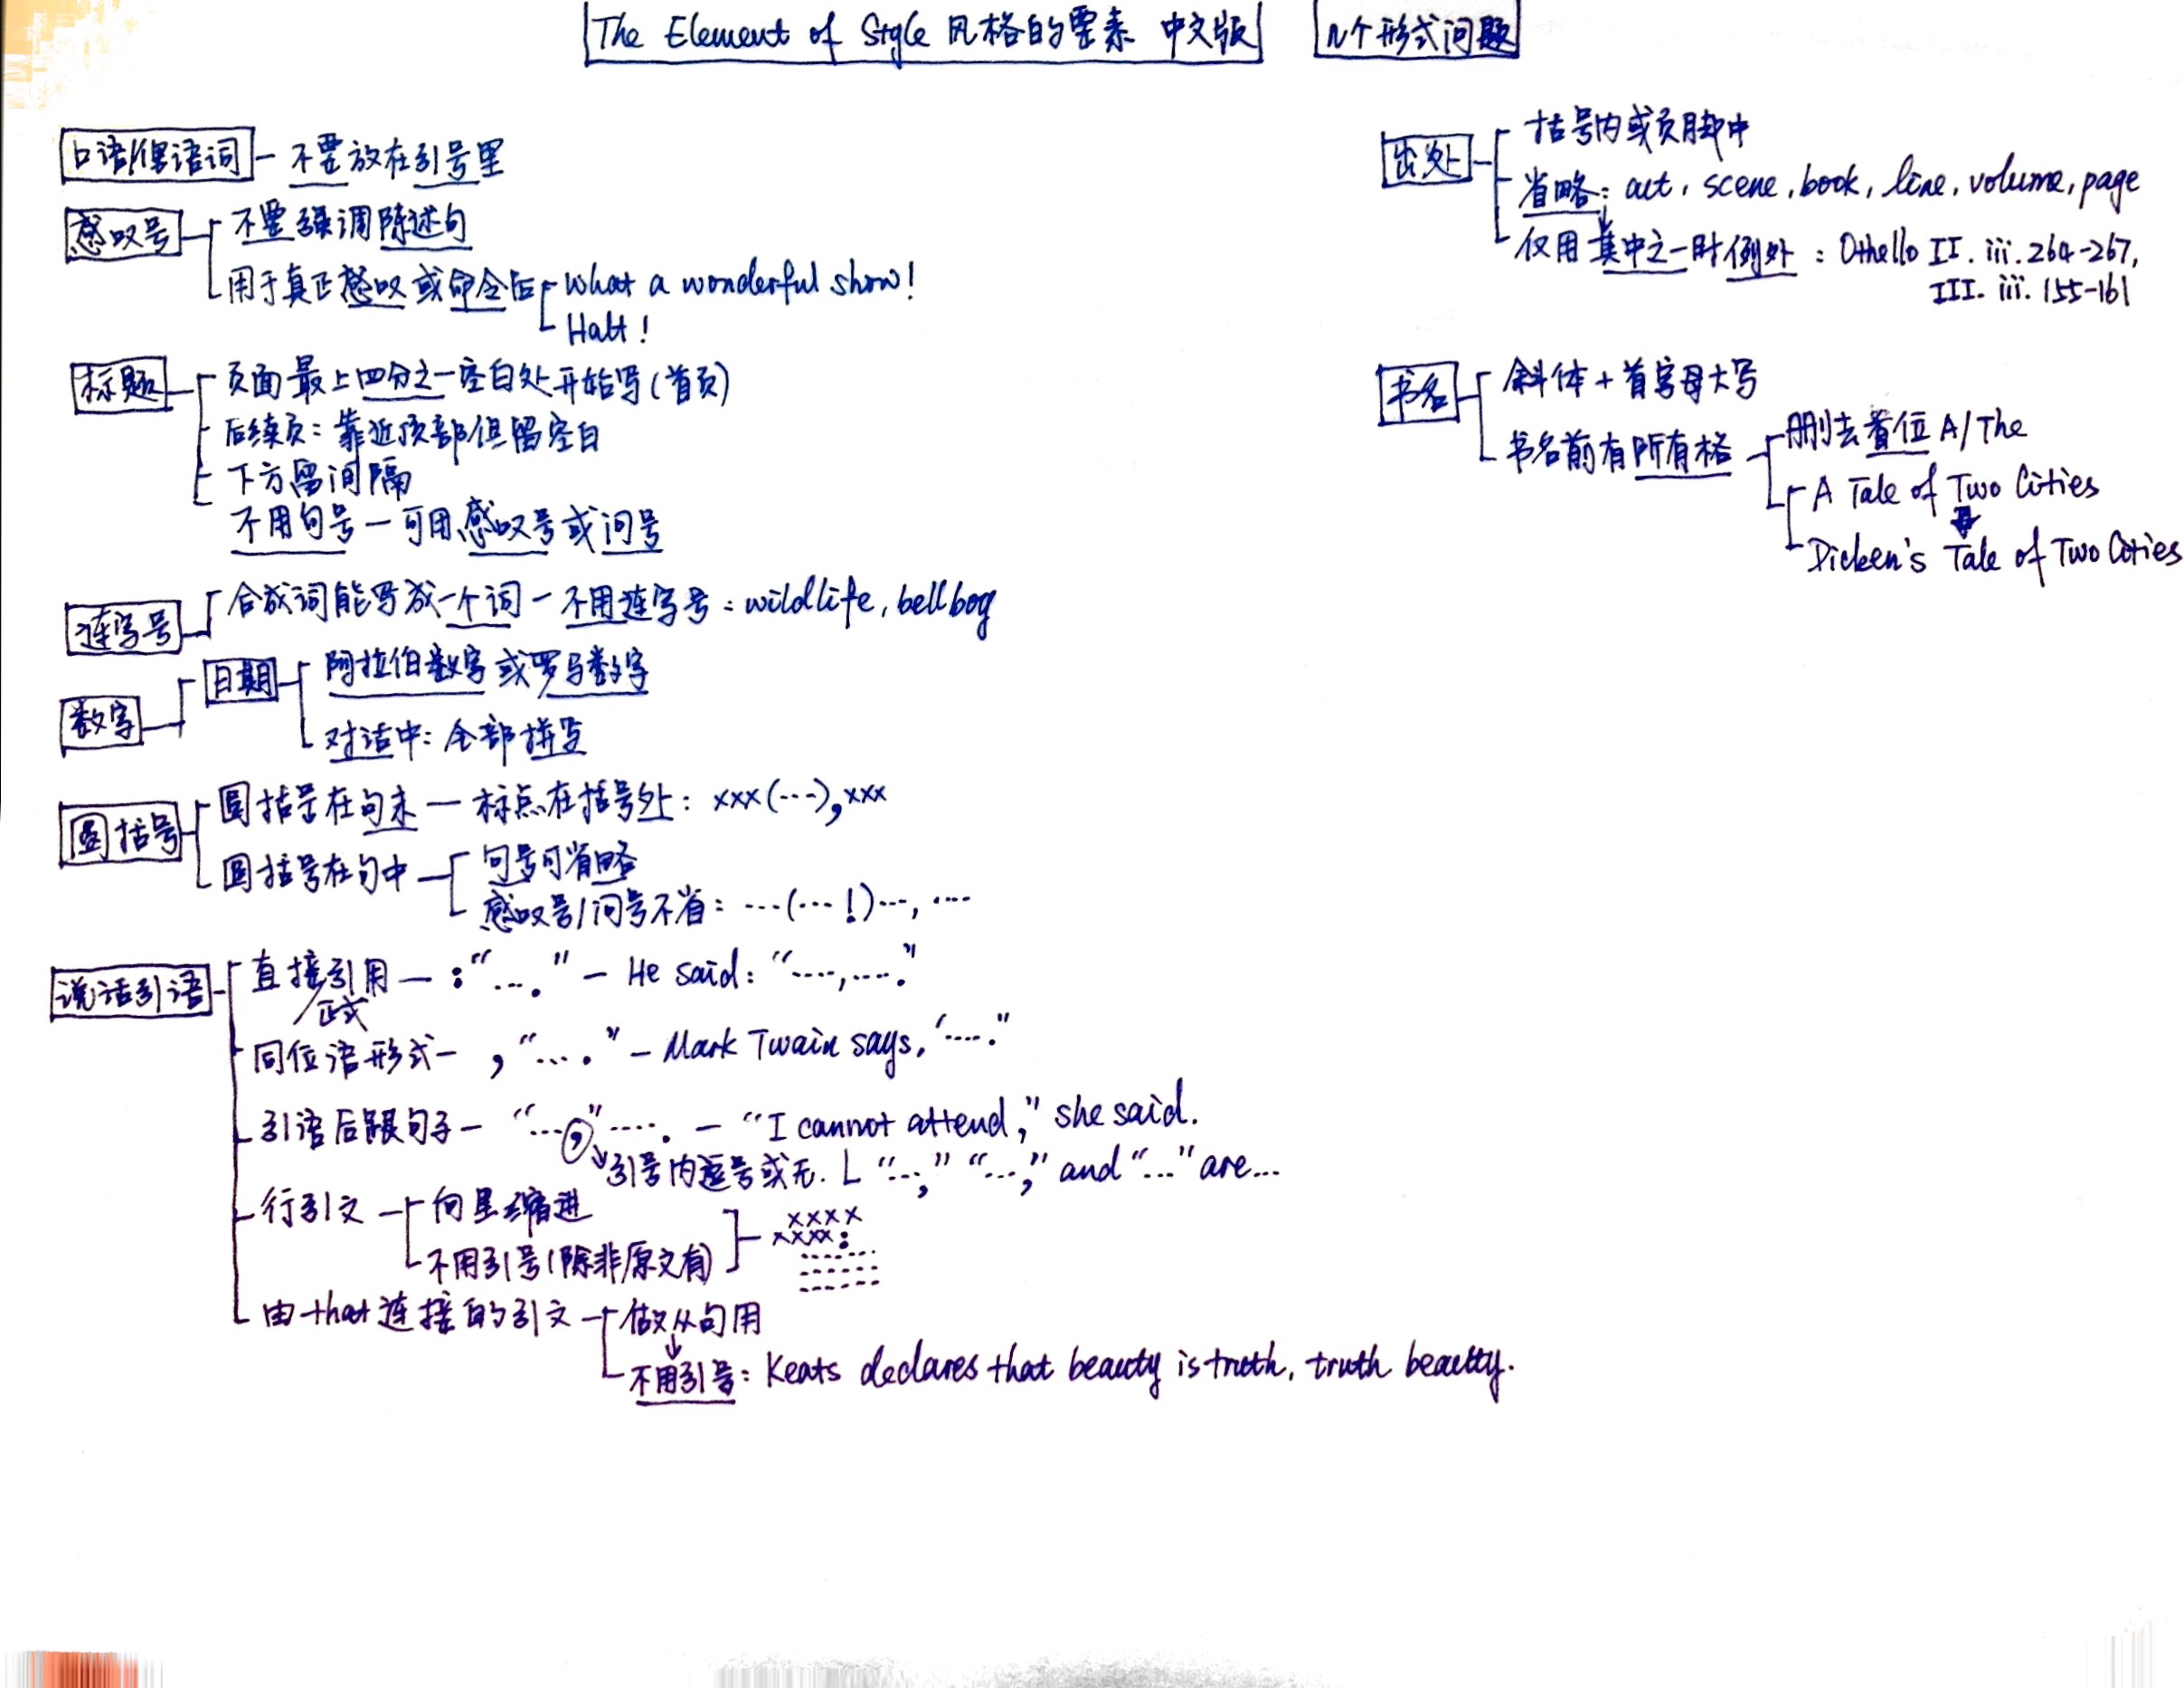 The Element of Style 风格的要素 中文版
N个形式问题
口语/俚语词 - 不要放在引号里
感叹号
不要强调陈述句
用于真正感叹或命令后
What a wonderful show!
Halt!
标题
页面最上四分之一空白处开始写(首页)
后续页: 靠近顶部但留空白
下方留间隔
不用句号 - 可用感叹号或问号
连字号
合成词能写成一个词 - 不用连字号: wildlife, bellboy
数字
日期
阿拉伯数字或罗马数字
对话中: 全部拼写
圆括号
圆括号在句末 — 标点在括号外: xxx(…),xxx
圆括号在句中
句号可省略
感叹号/问号不省: …(…!)…, …
说话引语
直接引用 — : "…." - He said: "…,…."
正式
同位语形式 - , "…." - Mark Twain says, "…."
引语后跟句子 - "…,"…. - "I cannot attend," she said.
引号内逗号或无. "…," "…," and "…" are…
行引文
向里缩进
不用引号(除非原文有)
xxxx
xxxx:
由that连接的引文
做从句用
不用引号: Keats declares that beauty is truth, truth beautty.
出处
括号内或页脚中
省略: act, scene, book, line, volume, page
仅用其中之一时例外: Othello II. iii. 264-267,
III. iii. 155-161
书名
斜体 + 首字母大写
书名前有所有格
删去首位 A/The
A Tale of Two Cities
Dicken's Tale of Two Cities